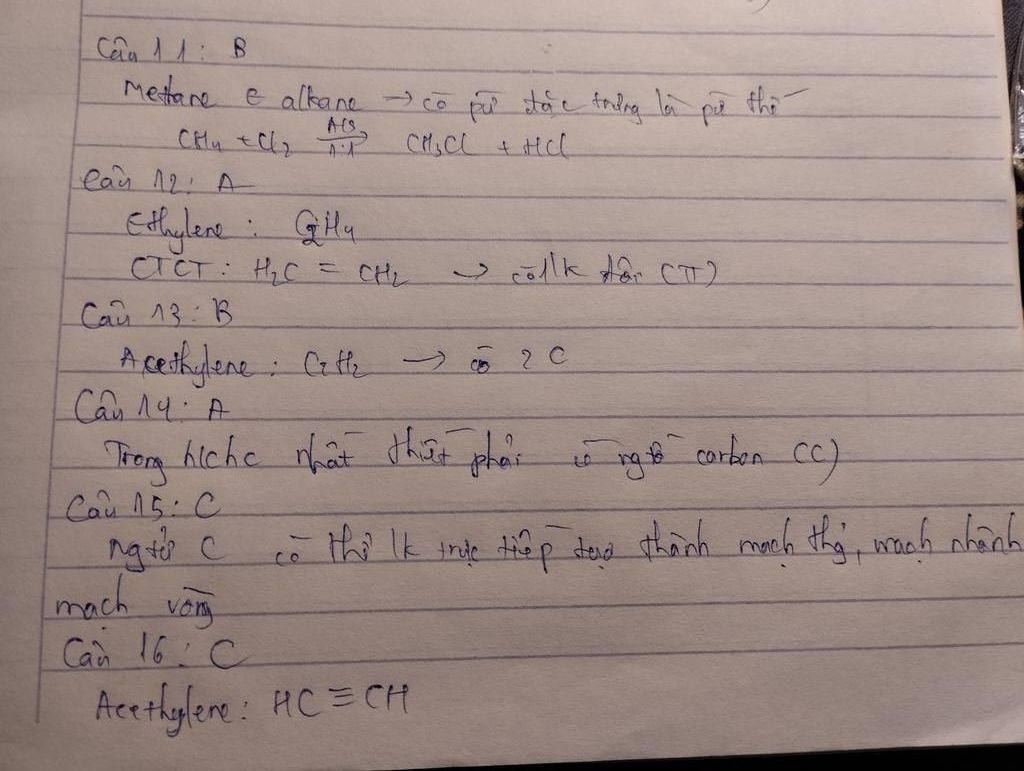 Câu 11: B
Methane ∈ alkane → có pứ đặc trưng là pứ thế
CH4 + Cl2 →(AS, 1:1) CH3Cl + HCl
Câu 12: A
Ethylene: C2H4
CTCT: H2C = CH2 → có lk đôi (π)
Câu 13: B
Acethylene: C2H2 → có 2 C
Câu 14: A
Trong hchc nhất thiết phải có ngtố carbon (C)
Câu 15: C
Ngtử C có thể lk trực tiếp tạo thành mạch thg, mạch nhánh
mạch vòng
Câu 16: C
Acethylene: HC ≡ CH